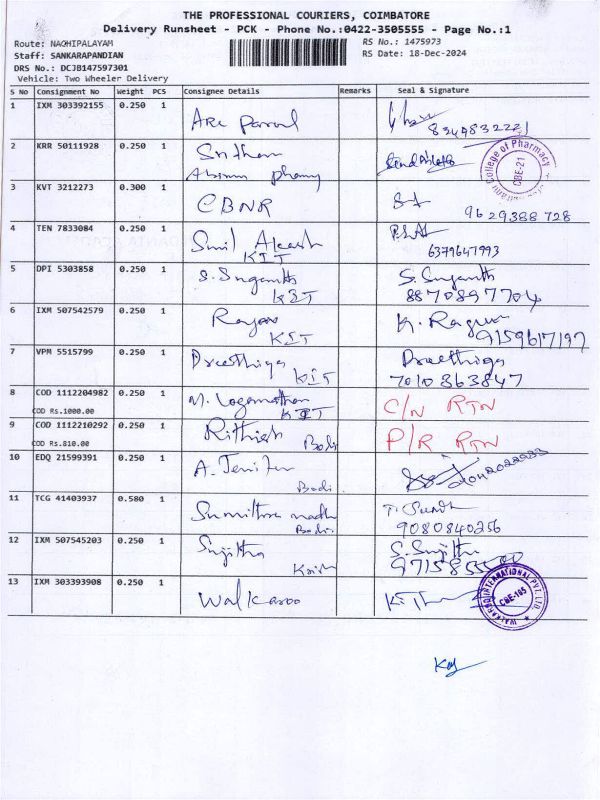 THE PROFESSIONAL COURIERS, COIMBATORE
Delivery Runsheet - PCK - Phone No.:0422-3505555 - Page No.:1
Route: NAGHIPALAYAM
RS No.: 1475973
Staff: SANKARAPANDIAN
RS Date: 18-Dec-2024
DRS No.: DCJB147597301
Vehicle: Two Wheeler Delivery
S No Consignment No Weight PCS Consignee Details Remarks Seal & Signature
1 IXM 303392155 0.250 1
8344832221
2 KRR 50111928 0.250 1
College of Pharmacy
CBE-21
3 KVT 3212273 0.300 1 CBNR
9629388728
4 TEN 7833084 0.250 1 Sunil Akash
KIT 6379647993
5 DPI 5303858 0.250 1 S. Suganth S. Suganth
KIT 8870897704
6 IXM 507542579 0.250 1 K. Ragun
KIT 9159617197
7 VPM 5515799 0.250 1 Preethiga Preethiga
KIT 7010863847
8 COD 1112204982 0.250 1 M. Loganathan C/N RTN
COD Rs.1000.00 KIT
9 COD 1112210292 0.250 1 Rithish P/R RTN
COD Rs.810.00 Bodi
10 EDQ 21599391 0.250 1 A. Jenifer
Bodi
11 TCG 41403937 0.580 1
Bodi. 9080840256
12 IXM 507545203 0.250 1 Sujitha S. Sujitha
13 IXM 303393908 0.250 1 Walkaroo
WALKAROO INTERNATIONAL PVT. LTD.
CBE-105